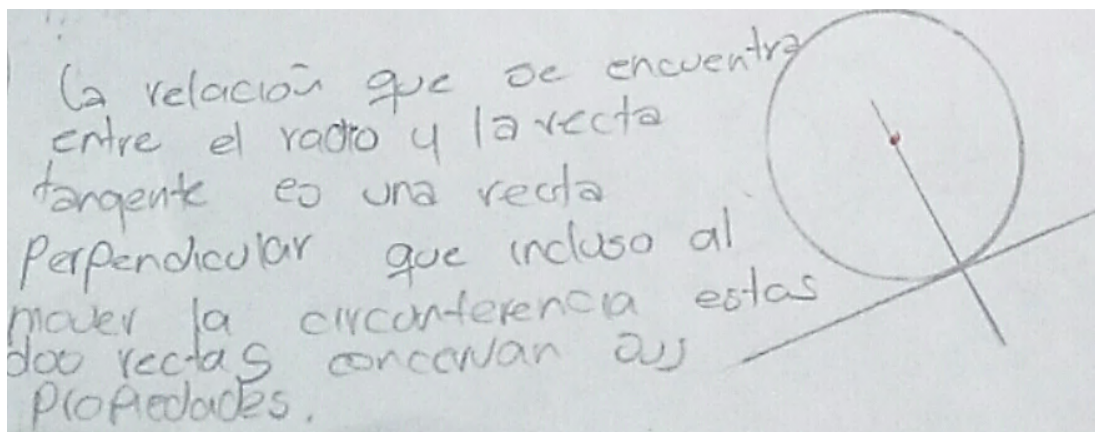 La relación que se encuentra
entre el radio y la recta
tangente es una recta
Perpendicular que incluso al
mover la circunferencia estas
dos rectas concervan sus
Propiedades.